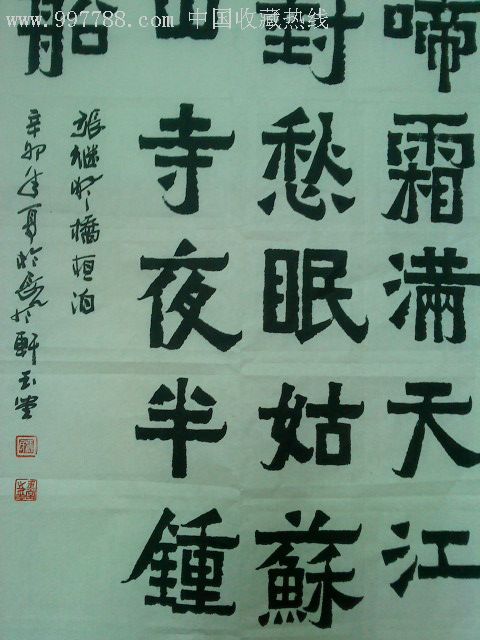 www.997788.com 中国收藏热线
啼霜滿天江
對愁眠姑蘇
山寺夜半鍾
船
張继枫橋夜泊
辛卯年夏於軒